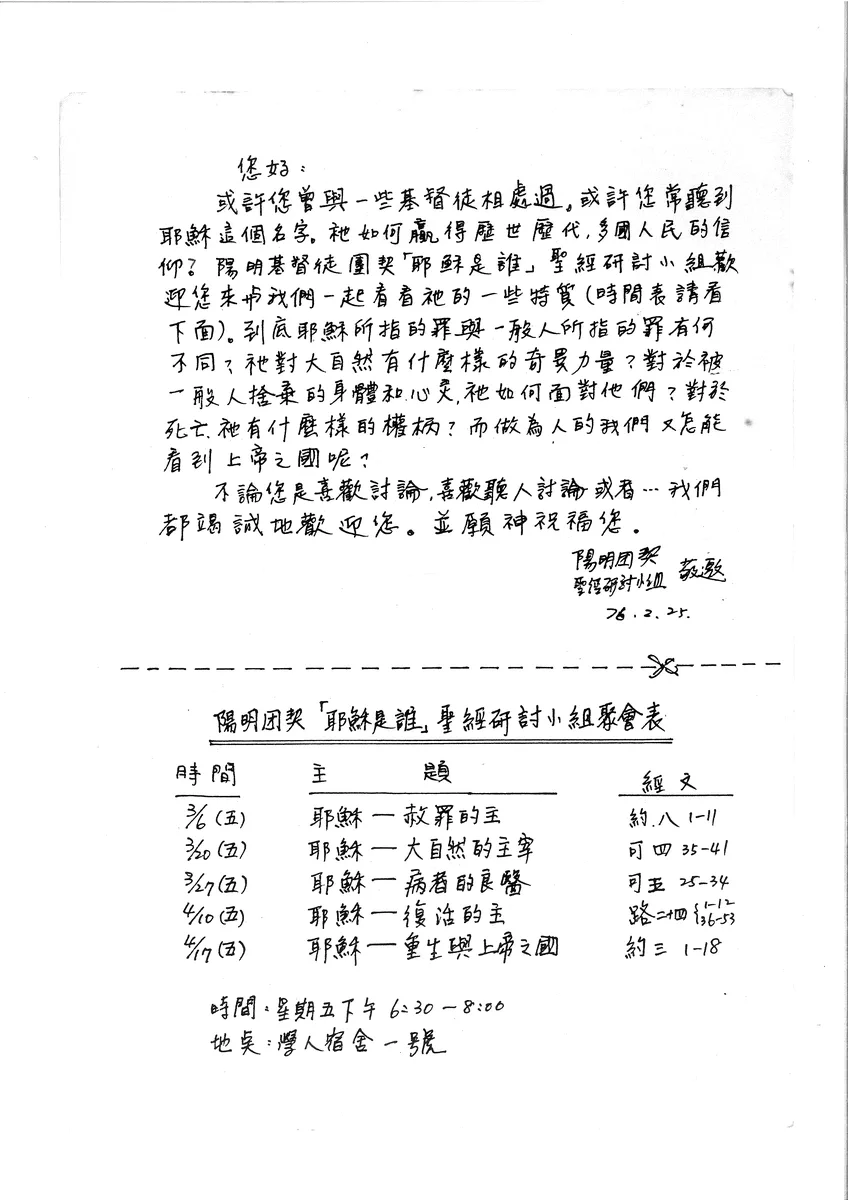 您好：
或許您曾與一些基督徒相處過。或許您常聽到
耶穌這個名字。祂如何贏得歷世歷代，多國人民的信
仰？陽明基督徒團契「耶穌是誰」聖經研討小組歡
迎您來與我們一起看看祂的一些特質（時間表請看
下面）。到底耶穌所指的罪與一般人所指的罪有何
不同？祂對大自然有什麼樣的奇異力量？對於被
一般人捨棄的身體和心灵，祂如何面對他們？對於
死亡，祂有什麼樣的權柄？而做為人的我們又怎能
看到上帝之國呢？
不論您是喜歡討論，喜歡聽人討論或者…我們
都竭誠地歡迎您。並願神祝福您。
陽明团契
聖經研討小組 敬邀
76.2.25.
陽明团契「耶穌是誰」聖經研討小組聚會表
時間 主題 經文
3/6（五） 耶穌—赦罪的主 約.八 1-11
3/20（五） 耶穌—大自然的主宰 可四 35-41
3/27（五） 耶穌—病者的良醫 可五 25-34
4/10（五） 耶穌—復活的主 路二十四{1-12 36-53
4/17（五） 耶穌—重生與上帝之國 約三 1-18
時間：星期五下午 6:30-8:00
地奌：學人宿舍一號